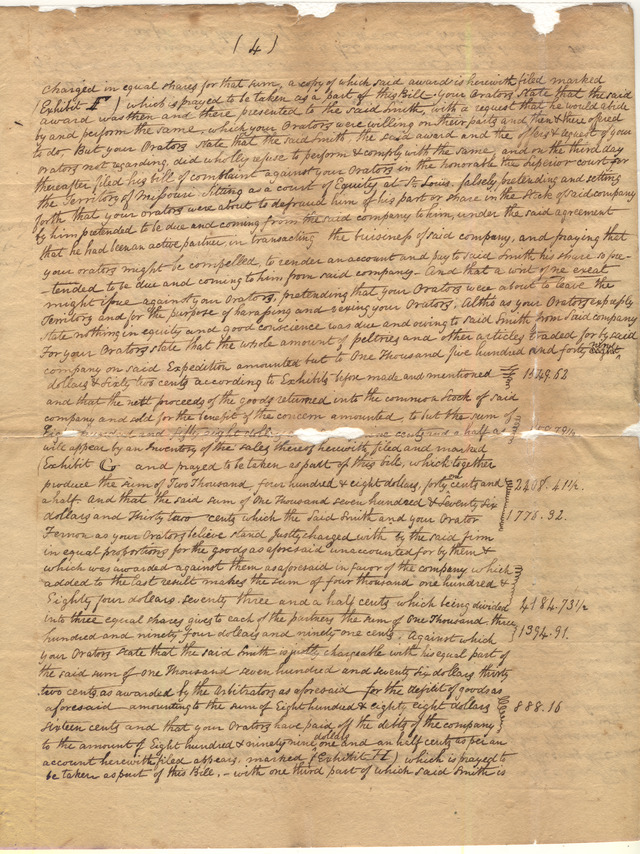 (4)
charged in equal shares for that sum, a copy of which said award is herewith filed marked
(Exhibit F) which is prayed to be taken as a part of this Bill. Your Orators state that the said
award was then and there presented to the said Smith, with a request that he would abide
by and perform the same, which your Orators were willing on their parts and then & there offered
to do, But your Orators state that the said Smith the said award and the offers & request of your
orators not regarding, did wholly refuse to perform & comply with the same, and on the third day
thereafter filed his bill of complaint against your Orators in the honorable the Superior court for
the Territory of Missouri Sitting as a court of Equity at St Louis. falsely pretending and setting
forth that your orators were about to defraud him of his part or share in the Stock of said company
by him pretended to be due and coming from the said company to him, under the said agreement
that he had been an active partner in transacting the buisiness of said company, and praying that
your orators might be compelled, to render an account and pay to said Smith his share so pre-
-tended to be due and coming to him from said company - And that a writ of ne exeat
might issue against your Orators, pretending that your Orators were about to leave the
Territory and for the purpose of harassing and vexing your Orators. Altho as your Orators expressly
state nothing in equity and good conscience was due and owing to said Smith from Said company
For your Orators state that the whole amount of peltries and other articles traded for by said
company on said Expedition amounted but to One Thousand five hundred and forty nine
dollars & Sixty two cents according to Exhibits before made and mentioned 1549.62
and that the nett proceeds of the goods returned into the common Stock of said
company and sold for the benefit of the concern amounted to but the sum of
hundred and fifty eight cents and a half as
will appear by an Inventory of the sales thereof herewith filed and marked
(Exhibit G and prayed to be taken as part of this bill, which together
produce the sum of Two Thousand four hundred & eight dollars, forty one cents and 2408.41½
a half. And that the said sum of One Thousand seven hundred & Seventy Six
dollars and Thirty two cents which the Said Smith and your Orator 1776.32.
Fernon as your Orators believe stand Justly charged with by the said firm
in equal proportions for the goods as aforesaid unaccounted for by them &
which was awarded against them as aforesaid in favor of the company which
added to the last result makes the sum of four thousand one hundred &
Eighty four dollars. Seventy three and a half cents which being divided 4184.73½
into three equal shares gives to each of the partners the sum of One Thousand three
hundred and ninety four dollars and ninety one cents. Against which 1394.91.
your Orators State that the said Smith is justly chargeable with his equal part of
the said sum of One Thousand Seven hundred and seventy six dollars thirty
two cents as awarded by the Arbitrators as aforesaid for the deficit of goods as
aforesaid amounting to the sum of Eight hundred & eighty eight dollars 888.16
Sixteen cents and that your Orators have paid off the debts of the company
to the amount of Eight hundred & ninety nine dollars one and an half cents as per an
account herewith filed appears, marked (Exhibit H) which is prayed to
be taken as part of this Bill. - with one third part of which said Smith is